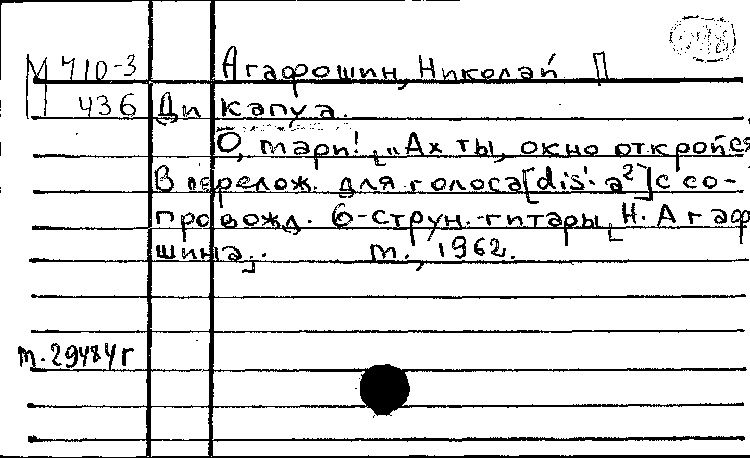 М 710-3 Агафошин, Николай П
436 Ди Капуа.
О, Мари! „Ах ты, окно откройся
В перелож. для голоса [dis'-a²] с со-
провожд. 6-струн. гитары [Н. Агафо
шина]. М., 1962.
м. 29484г